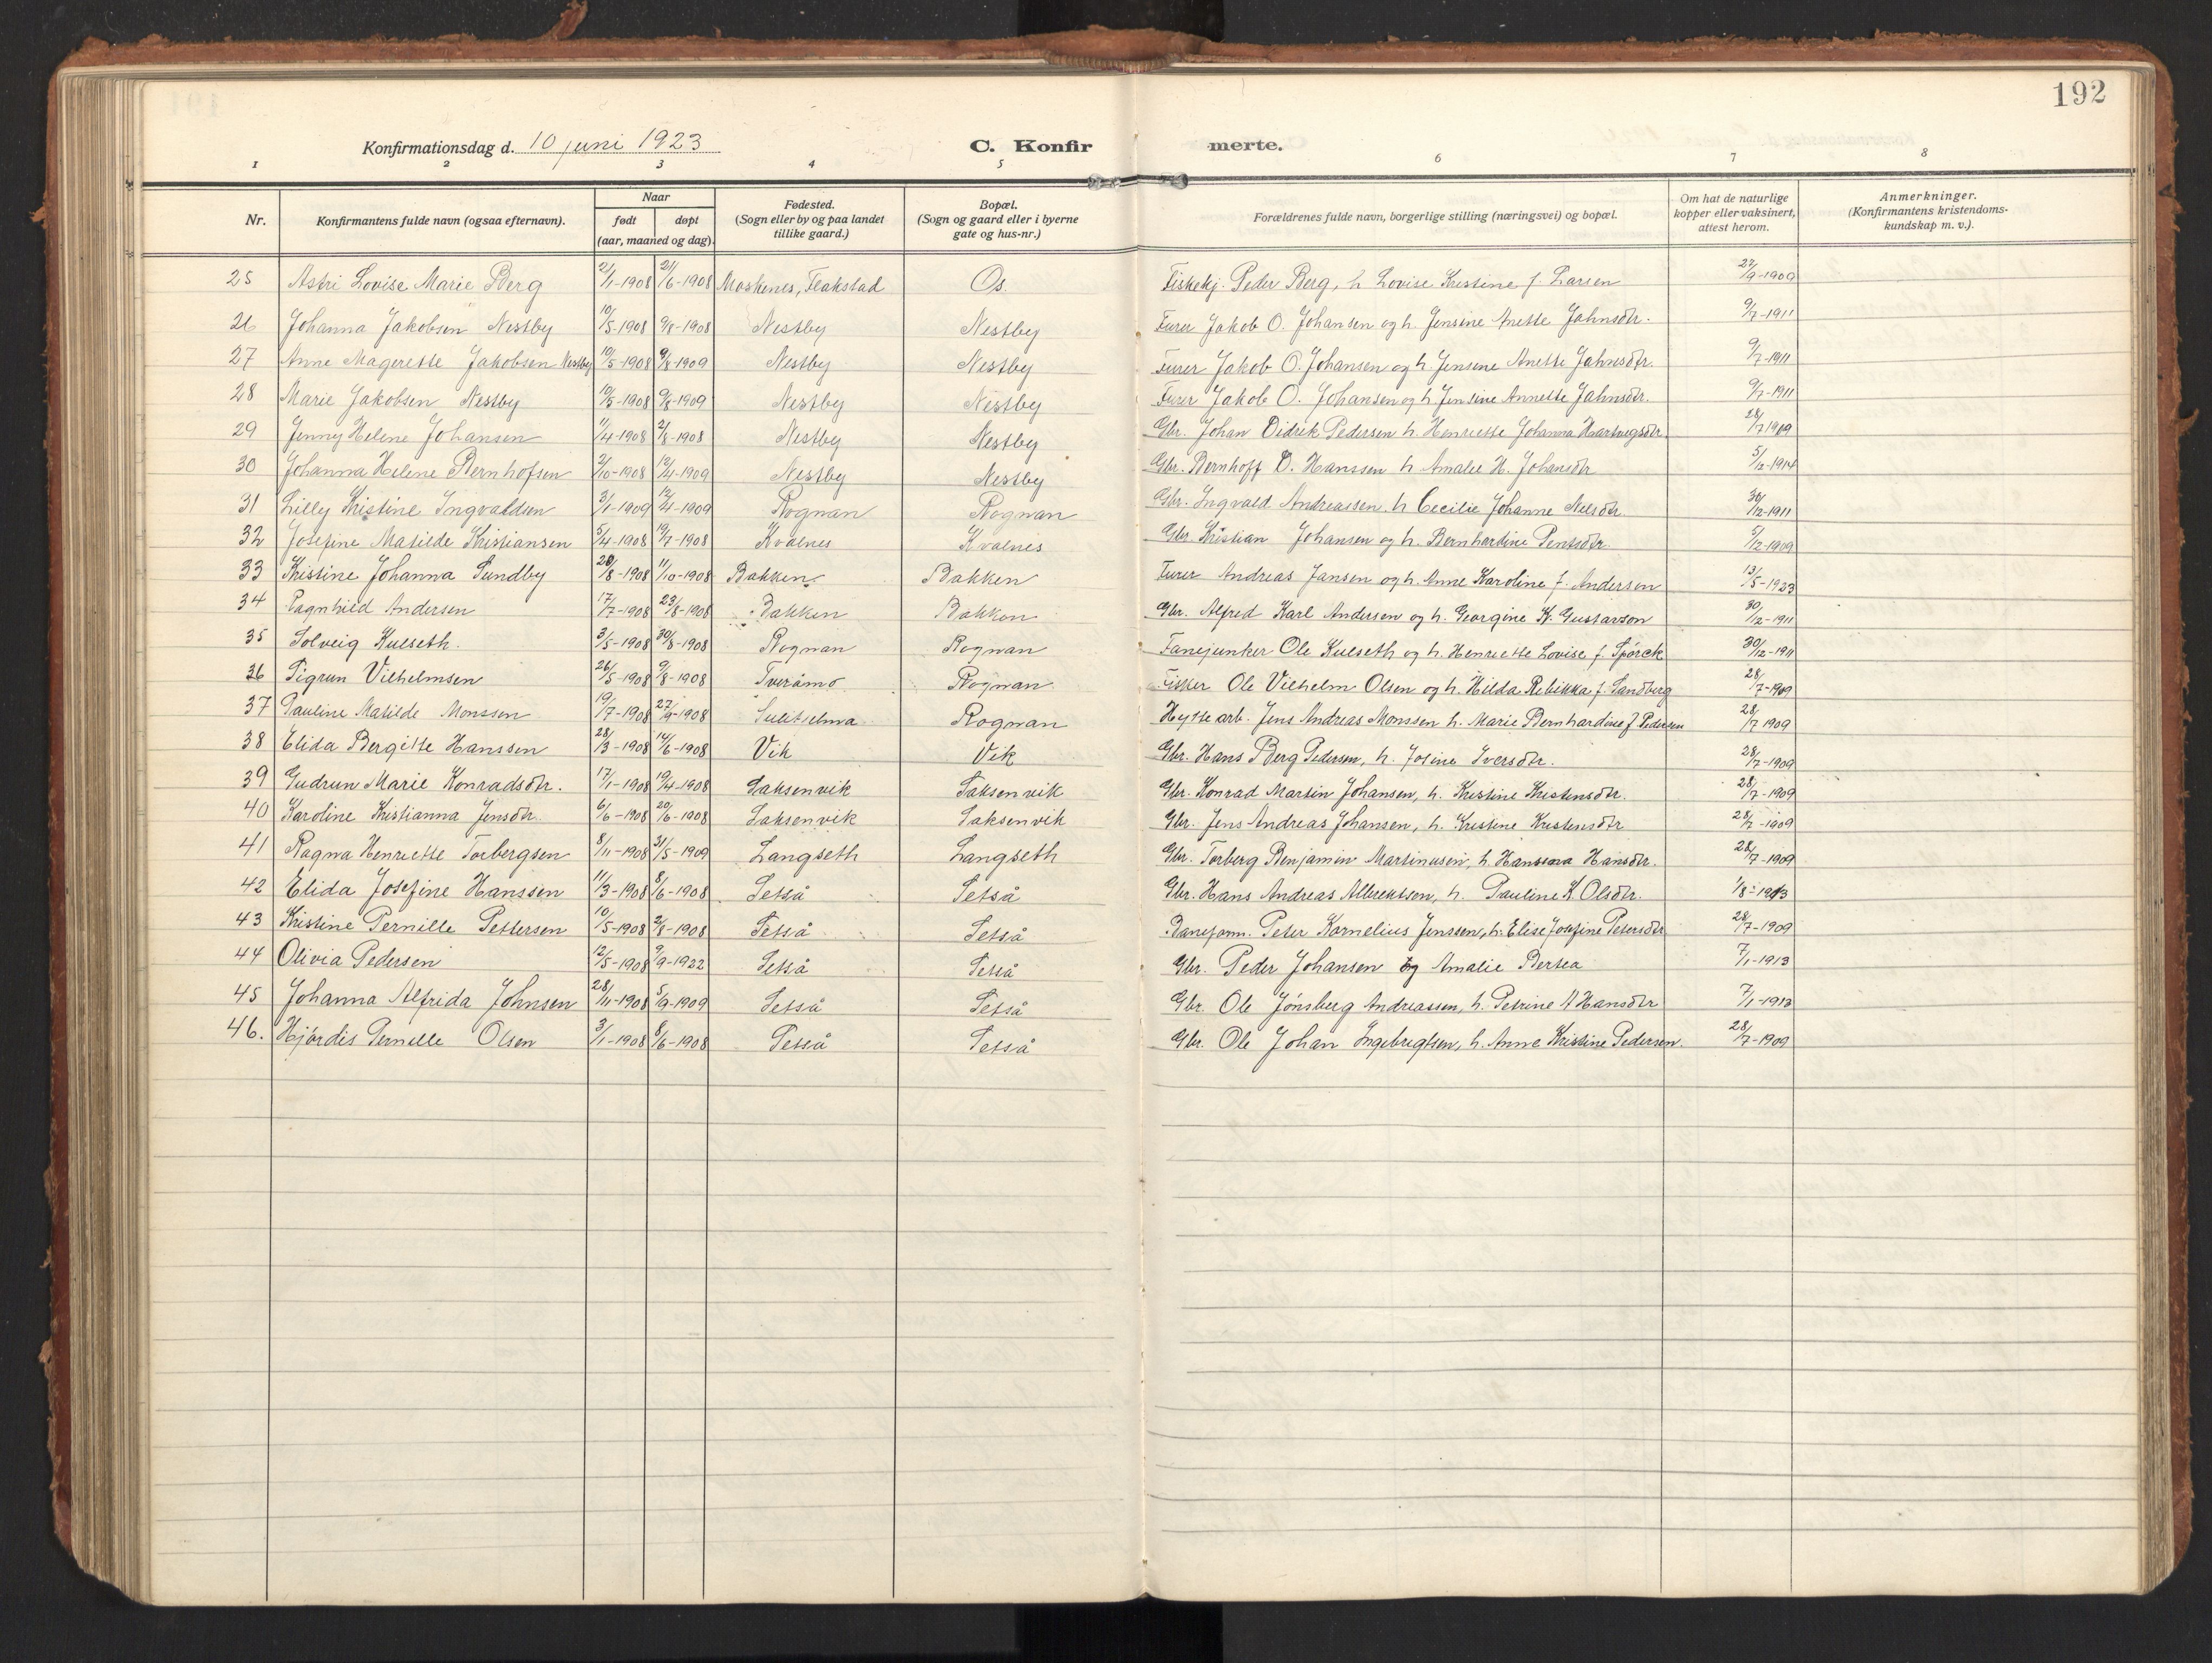 192
Konfirmationsdag d. 10 juni 1923
C. Konfir merte.
1 2 3 4 5 6 7 8
Nr. Konfirmantens fulde navn (ogsaa efternavn). Naar født døpt (aar, maaned og dag). Fødested. (Sogn eller by og paa landet tillike gaard.) Bopæl. (Sogn og gaard eller i byerne gate og hus-nr.) Forældrenes fulde navn, borgerlige stilling (næringsvei) og bopæl. Om hat de naturlige kopper eller vaksinert, attest herom. Anmerkninger. (Konfirmantens kristendoms-kundskap m. v.).
25 Astri Lovise Marie Berg 2/1-1908 21/6-1908 Moskenes, Flakstad Os. Fiskekj. Peder Berg, h Lovise Kristine f. Larsen 27/9-1909
26 Johanna Jakobsen Nestby 10/5-1908 9/8-1908 Nestby Nestby Furer Jakob O. Johansen og h. Jensine Anette Jahnsdtr. 9/7-1911
27 Anne Magerette Jakobsen Nestby 10/5-1908 9/8-1909 Nestby Nestby Furer Jakob O. Johansen og h. Jensine Anette Jahnsdtr. 9/7-1911
28 Marie Jakobsen Nestby 10/5-1908 9/8-1909 Nestby Nestby Furer Jakob O. Johansen og h. Jensine Annette Jahnsdtr. 9/7-1911
29 Jenny Helene Johansen 11/4-1908 2/8-1908 Nestby Nestby Gbr. Johan Didrik Pedersen h. Henriette Johanna Hartvigsdtr. 28/7 1909
30 Johanna Helene Bernhofsen 2/10-1908 12/4-1909 Nestby Nestby Gbr. Bernhoff D. Hanssen h Amalie H. Johansdtr 5/12-1914
31 Lilly Kristine Ingvaldsen 3/1-1909 12/4-1909 Rognan Rognan Gbr. Ingvald Andreassen. h Cecilie Johanne Nilsdtr. 30/12-1911
32 Josefine Matilde Kristiansen 5/4-1908 19/7-1908 Kvalnes Kvalnes Gbr. Kristian Johansen og h. Bernhardine Pentsdtr. 5/12-1909
33 Kristine Johanna Sundby 28/8-1908 11/10-1908 Bakken Bakken Furer Andreas Jansen og h. Anne Karoline f. Andersen 13/5-1923
34 Ragnhild Andersen 17/7-1908 23/8-1908 Bakken Bakken Gbr. Alfred Karl Andersen og h. Georgine K. Gustavson 30/12-1911
35 Solveig Kulseth. 3/5-1908 30/8-1908 Rognan Rognan Fanejunker Ole Kulseth og h. Henriette Lovise f. Spørck 30/12-1911
36 Sigrun Vilhelmsen 26/5-1908 9/8-1908 Tveråmo Rognan Fisker Ole Vilhelm Olsen og h. Hilda Rebikka f. Sandberg 28/7-1909
37 Pauline Matilde Monssen 19/7-1908 27/9-1908 Sulitjelma Rognan Hytte arb. Jens Andreas Monssen h. Marie Bernhardine f. Pedersen 28/7 1909
38 Elida Bergitte Hanssen 28/3-1908 14/6-1908 Vik Vik Gbr. Hans Berg Pedersen, h. Josine Iversdtr. 28/7-1909
39 Gudrun Marie Konradsdtr. 17/1-1908 19/4-1908 Saksenvik Saksenvik Gbr. Konrad Martin Johansen, h. Kristine Kristensdtr. 28/7-1909
40 Karoline Kristianna Jensdtr. 6/6-1908 20/6-1908 Saksenvik Saksenvik Gbr. Jens Andreas Johansen, h. Kristine Kristensdtr 28/7-1909
41 Ragna Henriette Torbergsen 8/11-1908 31/5-1909 Langseth Langseth Gbr. Torberg Benjamin Martinusen, h. Hansina Hansdtr. 28/7-1909
42 Elida Josefine Hanssen 11/3-1908 8/6-1908 Setså Setså Gbr. Hans Andreas Albrektsen, h. Pauline K. Olsdtr. 1/8-1913
43 Kristine Pernille Pettersen 10/5-1908 2/8-1908 Setså Setså Baneform. Peter Kornelius Jenssen, h. Elise Josefine Petersdtr 28/7-1909
44 Olivia Pedersen 12/5-1908 9/9-1922 Setså Setså Gbr. Peder Johansen og Amalie Bertea 7/1-1913
45 Johanna Alfrida Johnsen 28/11-1908 5/9-1909 Setså Setså Gbr. Ole Jønsberg Andreassen, h. Petrine A Hansdtr 7/1-1913
46. Hjørdis Pernille Olsen 3/1-1908 8/6-1908 Setså Setså Gbr. Ole Johan Ingebrigtsen, h. Anne Kristine Pedersen. 28/7-1909